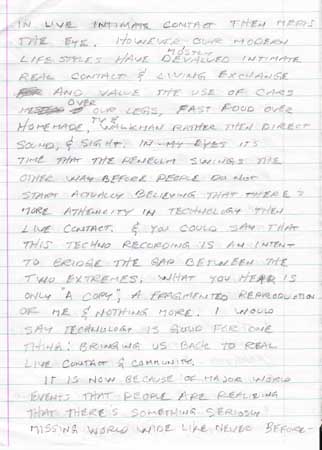 IN LIVE INTIMATE CONTACT THEN MEETS
THE EYE. HOWEVER OUR MODERN
MOSTLY
LIFE STYLES HAVE DEVALUED INTIMATE
REAL CONTACT & LIVING EXCHANGE
AND VALUE THE USE OF CARS
OVER
OUR LEGS, FAST FOOD OVER
HOMEMADE, TV & WALKMAN RATHER THEN DIRECT
SOUND, & SIGHT. IN MY EYES IT'S
TIME THAT THE PENDULUM SWINGS THE
OTHER WAY BEFORE PEOPLE DO NOT
START ACTUALLY BELIEVING THAT THERE'S
MORE ATHENCITY IN TECHNOLOGY THEN
LIVE CONTACT. & YOU COULD SAY THAT
THIS TECHNO RECORDING IS AN INTENT
TO BRIDGE THE GAP BETWEEN THE
TWO EXTREMES. WHAT YOU HEAR IS
ONLY "A COPY", A FRAGMENTED REPRODUCTION
OF ME & NOTHING MORE. I WOULD
SAY TECHNOLOGY IS GOOD FOR ONE
THING: BRINGING US BACK TO REAL
LIVE CONTACT & COMMUNITY.
IT IS NOW BECAUSE OF MAJOR WORLD
EVENTS THAT PEOPLE ARE REALIZING
THAT THERE'S SOMETHING SERIOUSLY
MISSING WORLD WIDE LIKE NEVER BEFORE-